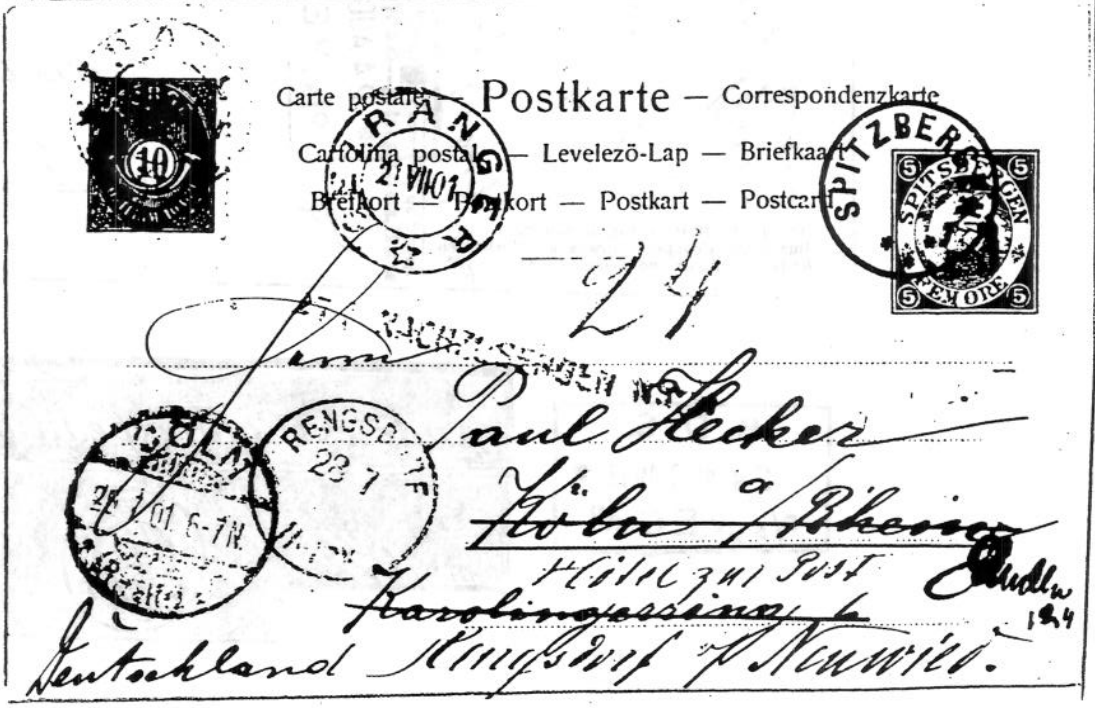 Carte postale — Postkarte — Correspondenzkarte
Cartolina postale — Levelező-Lap — Briefkaart
Brefkort — Postkort — Postkart — Postcard
10
21 VII 01
SPITZBERG
5 5
SPITSBERGEN
FEM ORE
5 5
24
NACHZUSENDEN
Paul Hecker
Köln a/Rhein
Hôtel zur Post
Karolingerring 6
Deutschland Rengsdorf b/ Neuwied.
CÖLN
01 6-7N
RENGSDORF
28 7